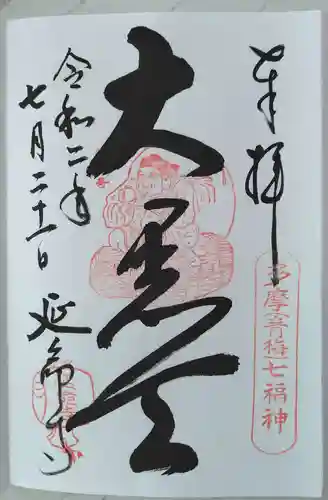 奉拝
多摩青梅七福神
大黒天
令和二年
七月二十一日
延命寺